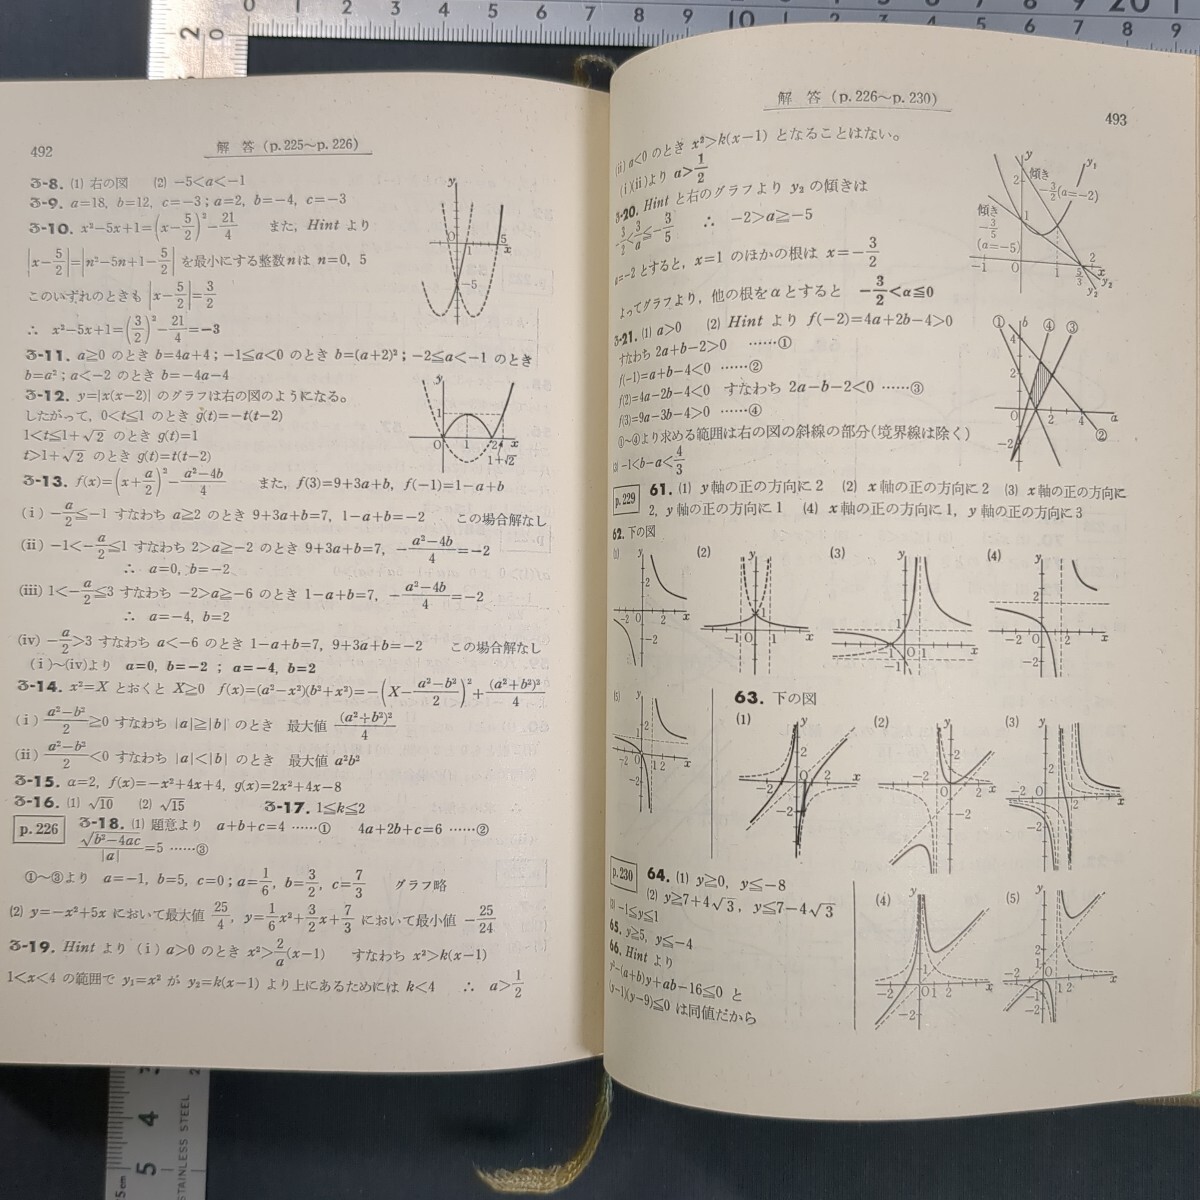 492
解 答 (p.225〜p.226)
3-8. (1) 右の図 (2) −5<a<−1
3-9. a=18, b=12, c=−3 ; a=2, b=−4, c=−3
3-10. x²−5x+1=(x−5/2)²−21/4 また, Hint より
|x−5/2|=|n²−5n+1−5/2| を最小にする整数nは n=0, 5
このいずれのときも |x−5/2|=3/2
∴ x²−5x+1=(3/2)²−21/4=−3
3-11. a≧0 のとき b=4a+4 ; −1≦a<0 のとき b=(a+2)² ; −2≦a<−1 のとき
b=a² ; a<−2 のとき b=−4a−4
3-12. y=|x(x−2)| のグラフは右の図のようになる。
したがって, 0<t≦1 のとき g(t)=−t(t−2)
1<t≦1+√2 のとき g(t)=1
t>1+√2 のとき g(t)=t(t−2)
3-13. f(x)=(x+a/2)²−(a²−4b)/4 また, f(3)=9+3a+b, f(−1)=1−a+b
(i) −a/2≦−1 すなわち a≧2 のとき 9+3a+b=7, 1−a+b=−2 この場合解なし
(ii) −1<−a/2≦1 すなわち 2>a≧−2 のとき 9+3a+b=7, −(a²−4b)/4=−2
∴ a=0, b=−2
(iii) 1<−a/2≦3 すなわち −2>a≧−6 のとき 1−a+b=7, −(a²−4b)/4=−2
∴ a=−4, b=2
(iv) −a/2>3 すなわち a<−6 のとき 1−a+b=7, 9+3a+b=−2 この場合解なし
(i)〜(iv)より a=0, b=−2 ; a=−4, b=2
3-14. x²=X とおくと X≧0 f(x)=(a²−x²)(b²+x²)=−(X−(a²−b²)/2)²+(a²+b²)²/4
(i) (a²−b²)/2≧0 すなわち |a|≧|b| のとき 最大値 (a²+b²)²/4
(ii) (a²−b²)/2<0 すなわち |a|<|b| のとき 最大値 a²b²
3-15. a=2, f(x)=−x²+4x+4, g(x)=2x²+4x−8
3-16. (1) √10 (2) √15 3-17. 1≦k≦2
p.226 3-18. (1) 題意より a+b+c=4 ……① 4a+2b+c=6 ……②
√(b²−4ac)/|a|=5 ……③
①〜③より a=−1, b=5, c=0 ; a=1/6, b=3/2, c=7/3 グラフ略
(2) y=−x²+5x において最大値 25/4, y=1/6x²+3/2x+7/3 において最小値 −25/24
3-19. Hint より (i) a>0 のとき x²>2/a(x−1) すなわち x²>k(x−1)
1<x<4 の範囲で y₁=x² が y₂=k(x−1) より上にあるためには k<4 ∴ a>1/2
解 答 (p.226〜p.230)
493
(ii) a<0 のとき x²>k(x−1) となることはない。
(i)(ii)より a>1/2
3-20. Hint と右のグラフより y₂ の傾きは
−3/2<3/a≦−3/5 ∴ −2>a≧−5
a=−2 とすると, x=1 のほかの根は x=−3/2
よってグラフより, 他の根をαとすると −3/2<α≦0
傾き −3/2 (a=−2)
傾き −3/5 (a=−5)
3-21. (1) a>0 (2) Hint より f(−2)=4a+2b−4>0
すなわち 2a+b−2>0 ……①
f(−1)=a+b−4<0 ……②
f(2)=4a−2b−4<0 すなわち 2a−b−2<0 ……③
f(3)=9a−3b−4>0 ……④
①〜④より求める範囲は右の図の斜線の部分(境界線は除く)
(3) −1<b−a<4/3
p.229 61. (1) y軸の正の方向に 2 (2) x軸の正の方向に 2 (3) x軸の正の方向に
2, y軸の正の方向に 1 (4) x軸の正の方向に 1, y軸の正の方向に 3
62. 下の図
(1) (2) (3) (4)
(5)
63. 下の図
(1) (2) (3)
p.230 64. (1) y≧0, y≦−8
(2) y≧7+4√3, y≦7−4√3
(3) −1≦y≦1
65. y≧5, y≦−4
66. Hint より
y²−(a+b)y+ab−16≦0 と
(y−1)(y−9)≦0 は同値だから
(4) (5)
STAINLESS STEEL